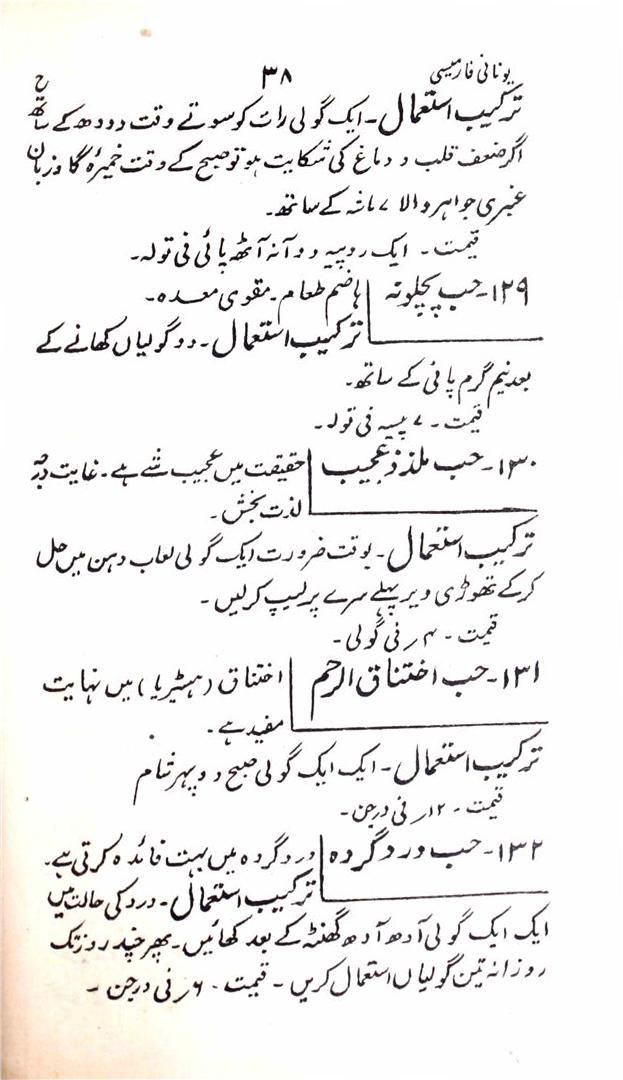 یونانی فارمیسی ۳۸ ح
ترکیب استعمال ۔ ایک گولی رات کو سوتے وقت دودھ کے ساتھ
اگر ضعف قلب و دماغ کی شکایت ہو تو صبح کے وقت خمیرۂ گاوزبان
عنبری جواہر والا ۷ ماشہ کے ساتھ۔
قیمت ۔ ایک روپیہ دو آنہ آٹھ پائی فی تولہ۔
۱۲۹۔ حب پچلونہ ہاضم طعام ۔ مقوی معدہ ۔
ترکیب استعمال ۔ دو گولیاں کھانے کے
بعد نیم گرم پانی کے ساتھ۔
قیمت ۔ ۷ پیسہ فی تولہ ۔
۱۳۰۔ حب ملذذ عجیب حقیقت میں عجیب شے ہے ۔ غایت درجہ
لذت بخش ۔
ترکیب استعمال ۔ بوقت ضرورت ایک گولی لعاب دہن میں حل
کر کے تھوڑی دیر پہلے سرے پر لیپ کر لیں ۔
قیمت ۔ ۴ر فی گولی ۔
۱۳۱۔ حب اختناق الرحم اختناق (ہسٹیریا) میں نہایت
مفید ہے ۔
ترکیب استعمال ۔ ایک ایک گولی صبح دوپہر شام
قیمت ۔ ۱۲ر فی درجن ۔
۱۳۲۔ حب درد گردہ درد گردہ میں بہت فائدہ کرتی ہے ۔
ترکیب استعمال ۔ درد کی حالت میں
ایک ایک گولی آدھ آدھ گھنٹہ کے بعد کھائیں ۔ پھر چند روز تک
روزانہ تین گولیاں استعمال کریں ۔ قیمت ۔ ۶ر فی درجن ۔